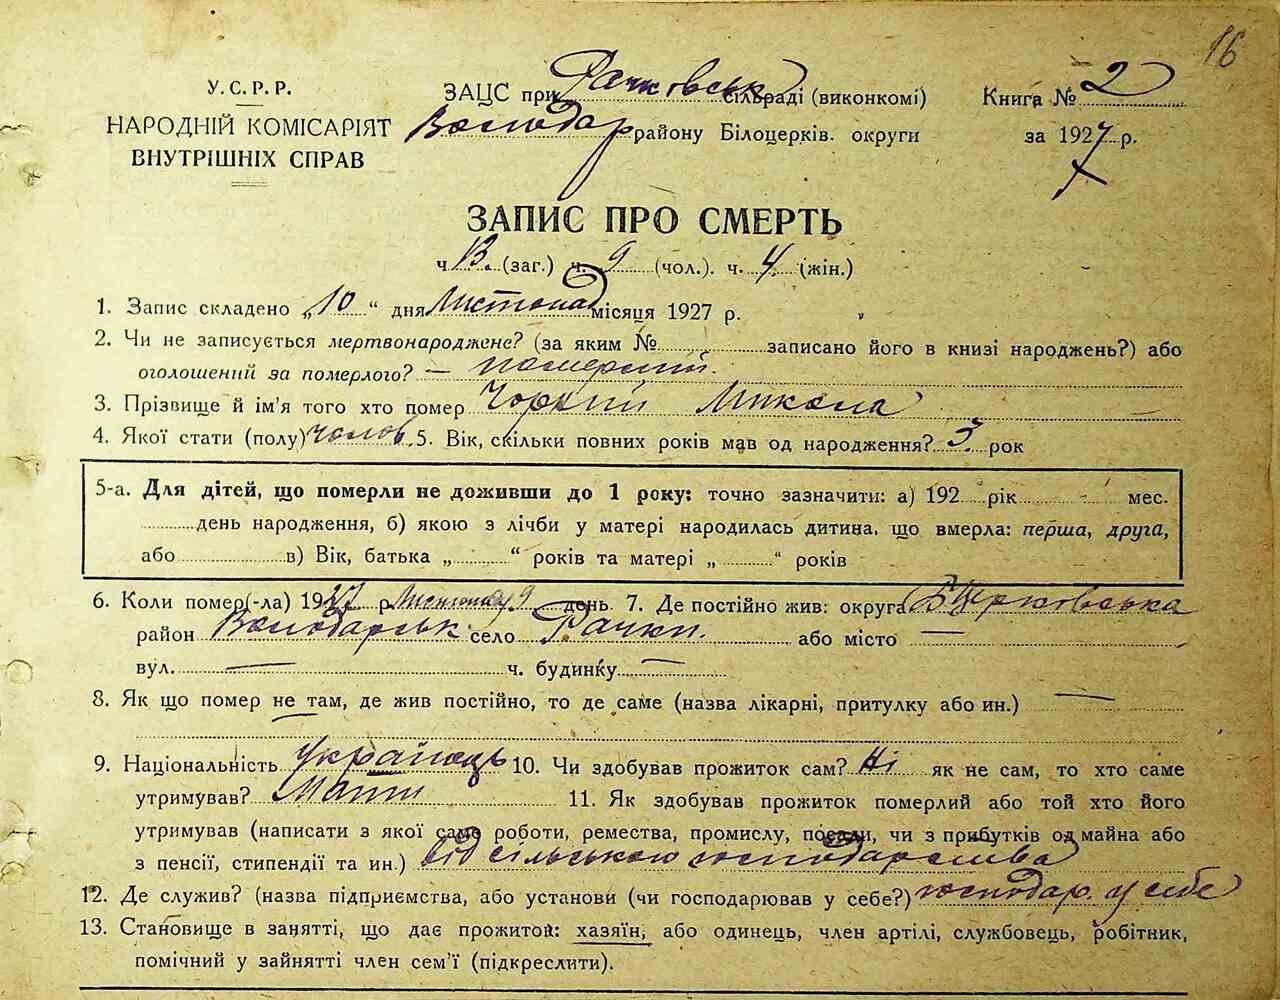 16
У.С.Р.Р.
НАРОДНІЙ КОМІСАРІЯТ
ВНУТРІШНІХ СПРАВ
ЗАЦС при Рачковськ сільраді (виконкомі)
Володар району Білоцерків. округи
Книга № 2
за 1927 р.
ЗАПИС ПРО СМЕРТЬ
ч. 13. (заг.) ч. 9 (чол.). ч. 4 (жін.)
1. Запис складено „10“ дня Листопад місяця 1927 р.
2. Чи не записується мертвонароджене? (за яким № записано його в книзі народжень?) або
оголошений за померлого? — померший.
3. Прізвище й ім'я того хто помер Чорний Микола
4. Якої стати (полу) чолов. 5. Вік, скільки повних років мав од народження? 3 рок
5-а. Для дітей, що померли не доживши до 1 року: точно зазначити: а) 192 рік - мес.
день народження, б) якою з лічби у матері народилась дитина, що вмерла: перша, друга,
або в) Вік, батька „ “ років та матері „ “ років
6. Коли помер(-ла) 1927 р. Листопад 9 день. 7. Де постійно жив: округа БЦерковська
район Володарськ село Рачки. або місто —
вул. — ч. будинку —
8. Як що помер не там, де жив постійно, то де саме (назва лікарні, притулку або ин.) —
9. Національність українець 10. Чи здобував прожиток сам? Ні як не сам, то хто саме
утримував? Мати 11. Як здобував прожиток померлий або той хто його
утримував (написати з якої саме роботи, ремества, промислу, посади, чи з прибутків од майна або
з пенсії, стипендії та ин.) від сільського господарства
12. Де служив? (назва підприємства, або установи (чи господарював у себе?) господар. у себе
13. Становище в занятті, що дає прожиток: хазяїн, або одинець, член артілі, службовець, робітник,
помічний у зайнятті член сем'ї (підкреслити).